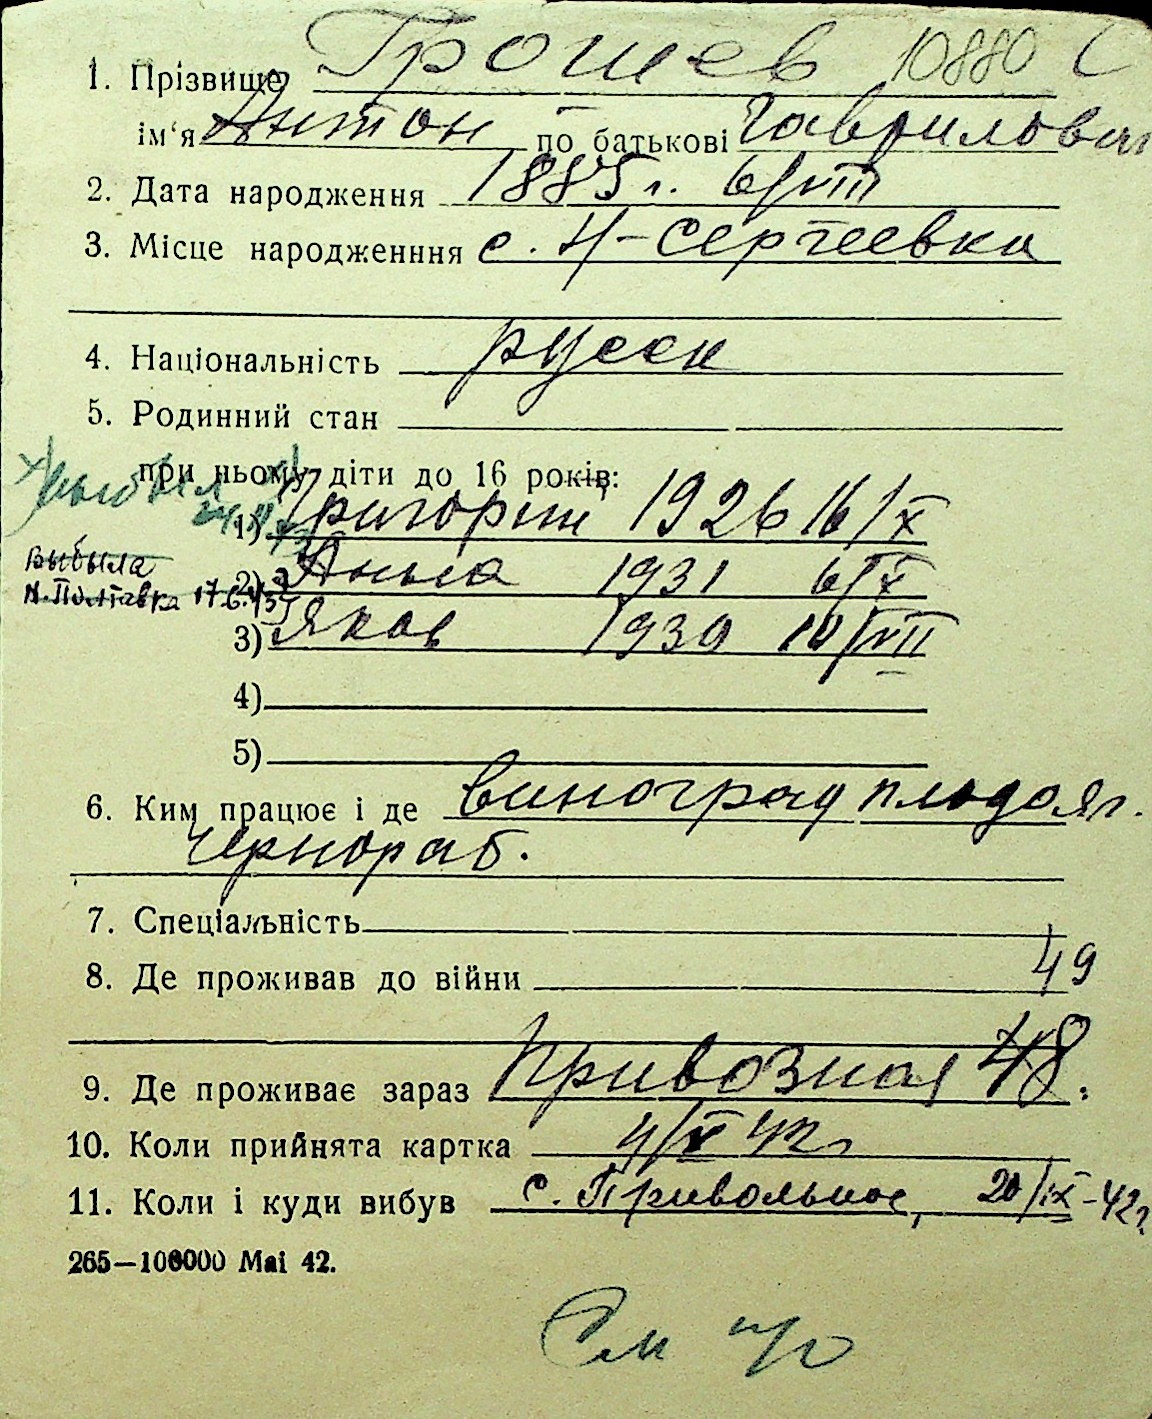 1. Прізвище Грошев 10880
ім'я Антон по батькові Гаврилович
2. Дата народження 1885 г. 6/VIII
3. Місце народженння с. Н-Сергеевка
4. Національність русск
5. Родинний стан
при ньому діти до 16 років:
1) Григорий 1926 16/X
Выбыла
2) Анна 1931 6/X
Н. Полтавка 17.6.43
3) Яков 1939 10/VII
4)
5)
6. Ким працює і де виноград плодояг.
Чернораб.
7. Спеціальність
49
8. Де проживав до війни
9. Де проживає зараз Привозная 48.
10. Коли прийнята картка 4/V 42г
11. Коли і куди вибув с. Привольное, 20/IX-42г.
265—100000 Mai 42.
См н/о